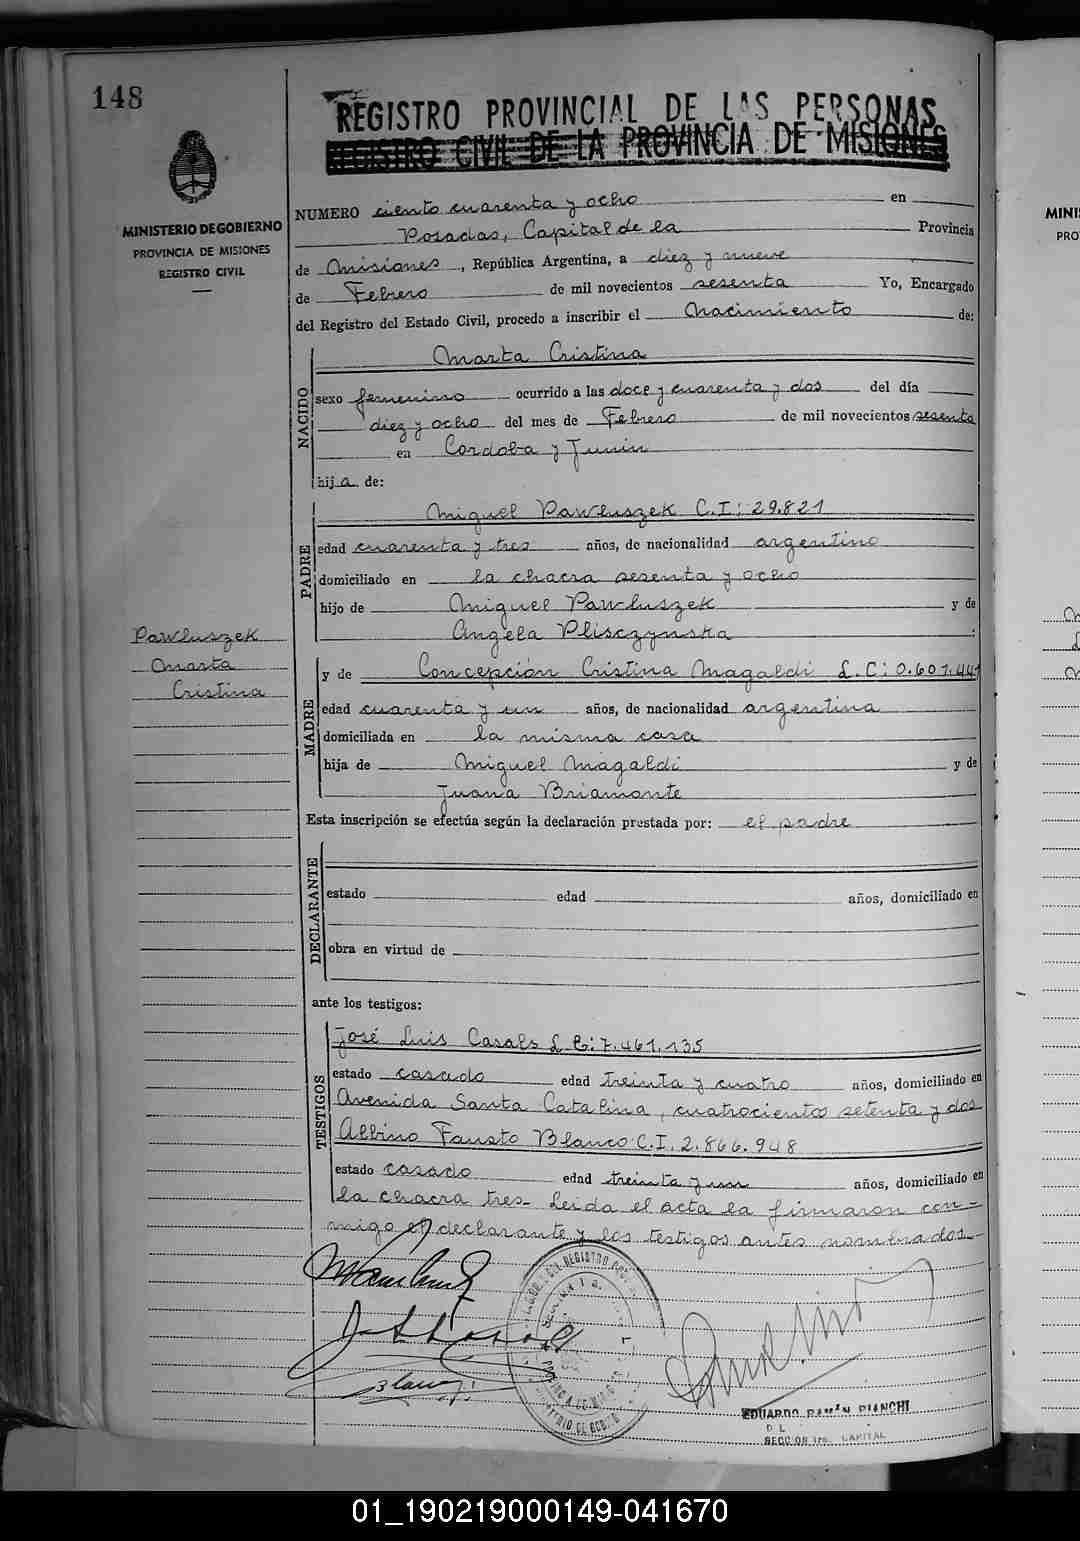 148
REGISTRO PROVINCIAL DE LAS PERSONAS
REGISTRO CIVIL DE LA PROVINCIA DE MISIONES
MINISTERIO DE GOBIERNO
PROVINCIA DE MISIONES
REGISTRO CIVIL
NUMERO ciento cuarenta y ocho en
Posadas, Capital de la Provincia
de Misiones, República Argentina, a diez y nueve
de Febrero de mil novecientos sesenta Yo, Encargado
del Registro del Estado Civil, procedo a inscribir el Nacimiento de:
NACIDO
Marta Cristina
sexo femenino ocurrido a las doce y cuarenta y dos del día
diez y ocho del mes de Febrero de mil novecientos sesenta
en Cordoba y Junin
hija de:
PADRE
Miguel Pawluszek C.I: 29.821
edad cuarenta y tres años, de nacionalidad argentino
domiciliado en la chacra sesenta y ocho
hijo de Miguel Pawluszek y de
Angela Plisczynska :
Pawluszek
Marta
Cristina
MADRE
y de Concepción Cristina Magaldi L.C: 0.601.441
edad cuarenta y un años, de nacionalidad argentina
domiciliada en la misma casa
hija de Miguel Magaldi y de
Juana Briamonte
Esta inscripción se efectúa según la declaración prestada por: el padre
DECLARANTE
estado edad años, domiciliado en
obra en virtud de
ante los testigos:
TESTIGOS
José Luis Casals L E: 7.461.135
estado casado edad treinta y cuatro años, domiciliado en
Avenida Santa Catalina, cuatrocientos setenta y dos
Albino Fausto Blanco C.I. 2.866.948
estado casado edad treinta y un años, domiciliado en
la chacra tres- Leida el acta la firmaron con-
migo el declarante y los testigos antes nombrados.-
EDUARDO RAMÓN BIANCHI
SECCION 1ra. CAPITAL
MINI
PRO
01_190219000149-041670